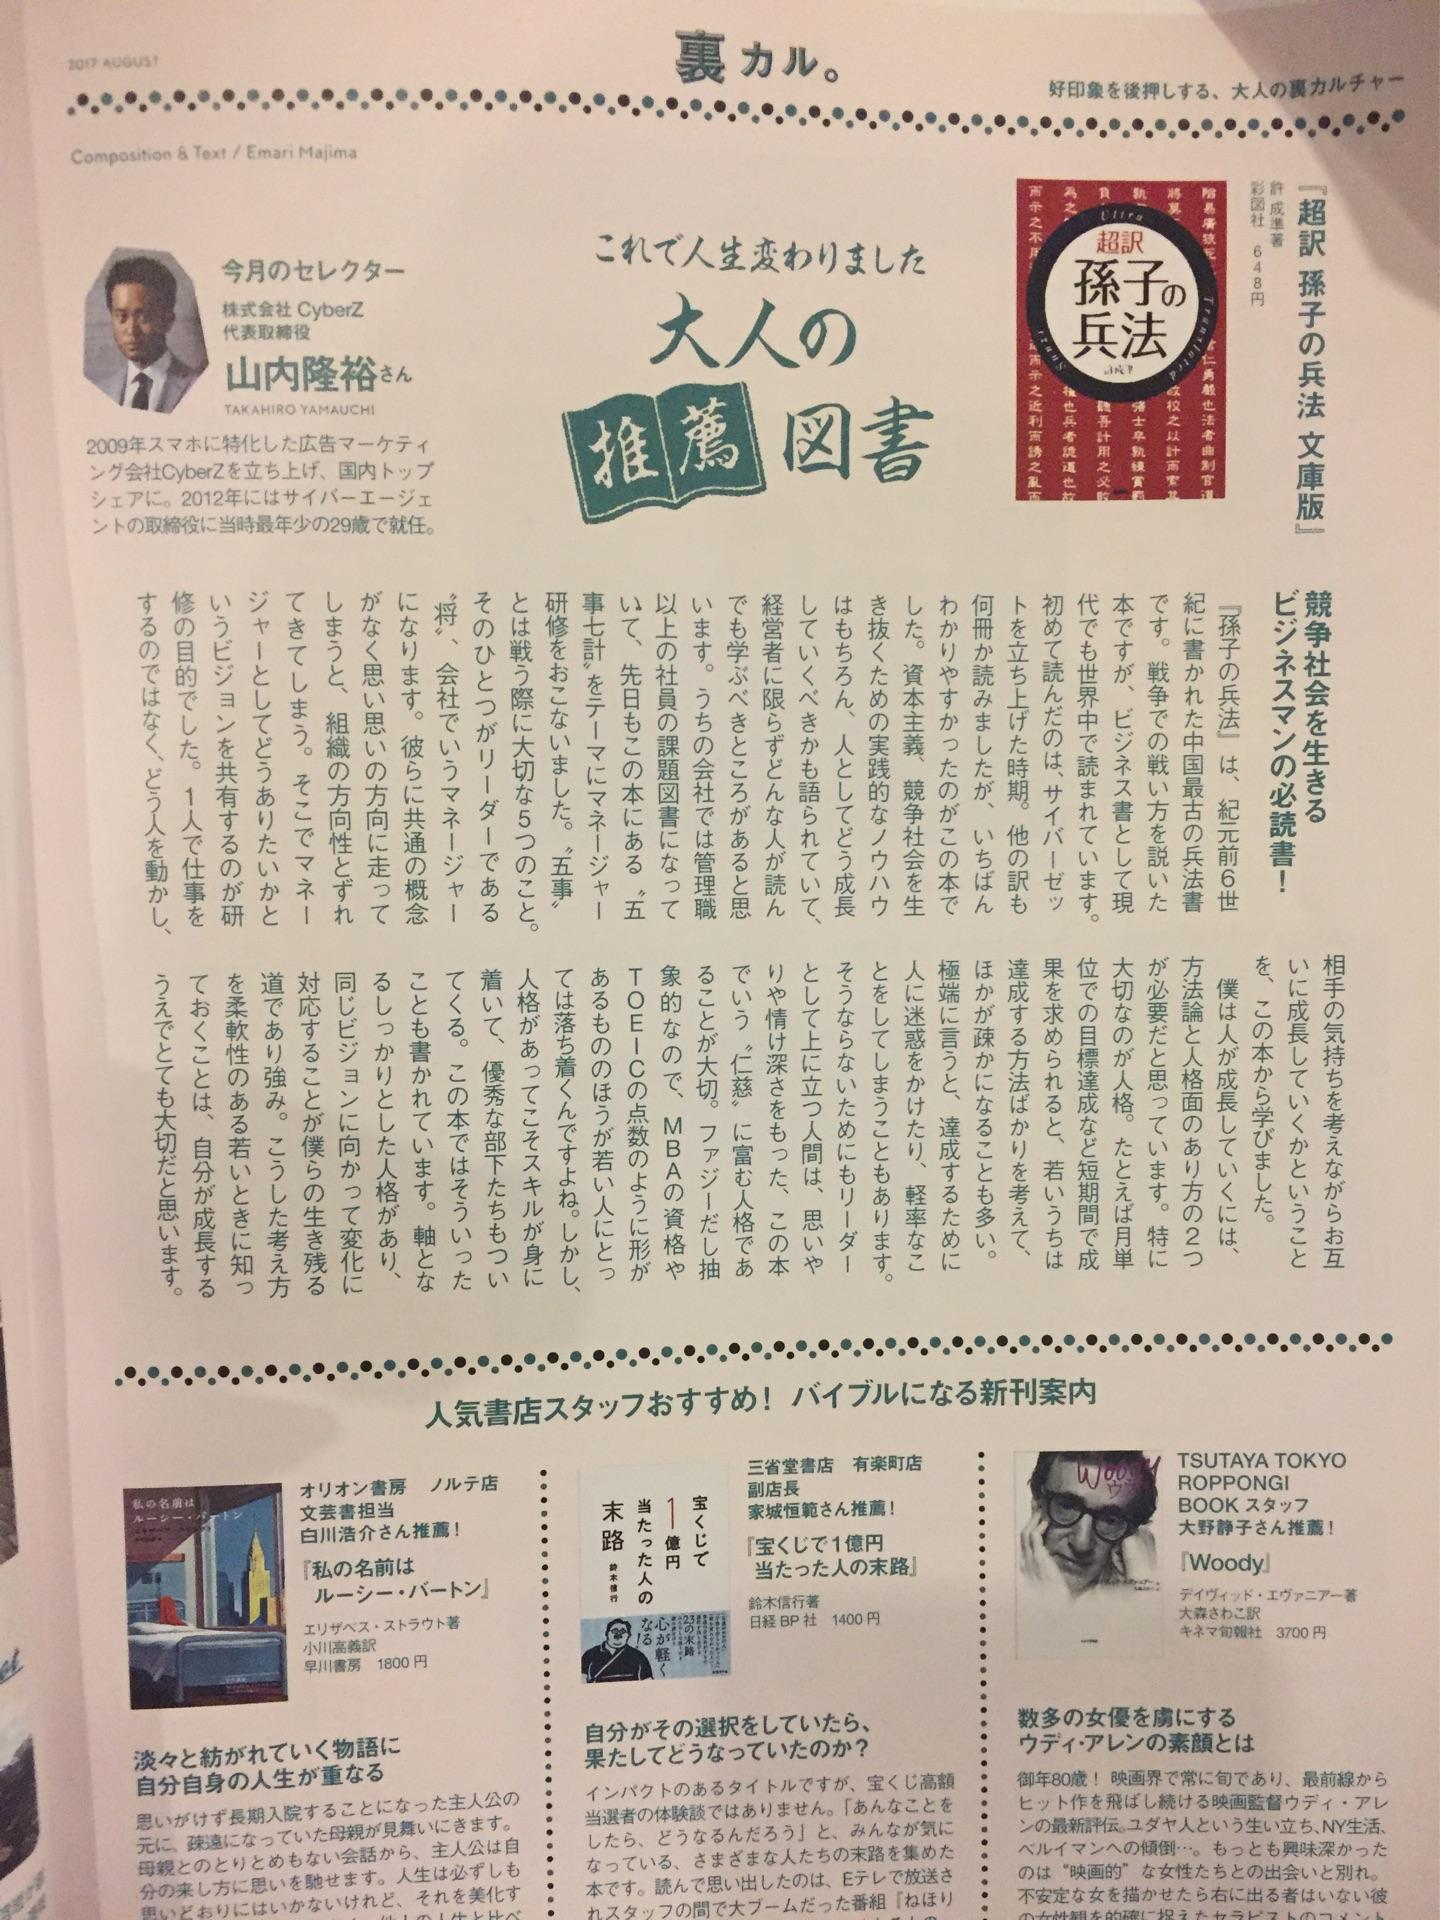 2017 AUGUST
裏カル。
好印象を後押しする、大人の裏カルチャー
Composition & Text / Emari Majima
今月のセレクター
株式会社 CyberZ
代表取締役
山内隆裕さん
TAKAHIRO YAMAUCHI
2009年スマホに特化した広告マーケティ
ング会社CyberZを立ち上げ、国内トップ
シェアに。2012年にはサイバーエージェ
ントの取締役に当時最年少の29歳で就任。
これで人生変わりました
大人の
推薦図書
Ultra
超訳
孫子の
兵法
Translated
Sunzi
『超訳 孫子の兵法 文庫版』
許 成準著
彩図社 648円
競争社会を生きる
ビジネスマンの必読書！
『孫子の兵法』は、紀元前6世
紀に書かれた中国最古の兵法書
です。戦争での戦い方を説いた
本ですが、ビジネス書として現
代でも世界中で読まれています。
初めて読んだのは、サイバーゼッ
トを立ち上げた時期。他の訳も
何冊か読みましたが、いちばん
わかりやすかったのがこの本で
した。資本主義、競争社会を生
き抜くための実践的なノウハウ
はもちろん、人としてどう成長
していくべきかも語られていて、
経営者に限らずどんな人が読ん
でも学ぶべきところがあると思
います。うちの会社では管理職
以上の社員の課題図書になって
いて、先日もこの本にある〝五
事七計〟をテーマにマネージャー
研修をおこないました。〝五事〟
とは戦う際に大切な5つのこと。
そのひとつがリーダーである
〝将〟、会社でいうマネージャー
になります。彼らに共通の概念
がなく思い思いの方向に走って
しまうと、組織の方向性とずれ
てきてしまう。そこでマネー
ジャーとしてどうありたいかと
いうビジョンを共有するのが研
修の目的でした。1人で仕事を
するのではなく、どう人を動かし、
相手の気持ちを考えながらお互
いに成長していくかということ
を、この本から学びました。
僕は人が成長していくには、
方法論と人格面のあり方の2つ
が必要だと思っています。特に
大切なのが人格。たとえば月単
位での目標達成など短期間で成
果を求められると、若いうちは
達成する方法ばかりを考えて、
ほかが疎かになることも多い。
極端に言うと、達成するために
人に迷惑をかけたり、軽率なこ
とをしてしまうこともあります。
そうならないためにもリーダー
として上に立つ人間は、思いや
りや情け深さをもった、この本
でいう〝仁慈〟に富む人格であ
ることが大切。ファジーだし抽
象的なので、MBAの資格や
TOEICの点数のように形が
あるもののほうが若い人にとっ
ては落ち着くんですよね。しかし、
人格があってこそスキルが身に
着いて、優秀な部下たちもつい
てくる。この本ではそういった
ことも書かれています。軸とな
るしっかりとした人格があり、
同じビジョンに向かって変化に
対応することが僕らの生き残る
道であり強み。こうした考え方
を柔軟性のある若いときに知っ
ておくことは、自分が成長する
うえでとても大切だと思います。
人気書店スタッフおすすめ！ バイブルになる新刊案内
私の名前は
ルーシー・バートン
オリオン書房 ノルテ店
文芸書担当
白川浩介さん推薦！
『私の名前は
ルーシー・バートン』
エリザベス・ストラウト著
小川高義訳
早川書房 1800円
淡々と紡がれていく物語に
自分自身の人生が重なる
思いがけず長期入院することになった主人公の
元に、疎遠になっていた母親が見舞いにきます。
母親とのとりとめもない会話から、主人公は自
分の来し方に思いを馳せます。人生は必ずしも
思いどおりにはいかないけれど、それを美化す
宝くじで
1億円
当たった人の
末路
鈴木信行
23の末路
心が軽く
なる！
三省堂書店 有楽町店
副店長
家城恒範さん推薦！
『宝くじで1億円
当たった人の末路』
鈴木信行著
日経BP社 1400円
自分がその選択をしていたら、
果たしてどうなっていたのか？
インパクトのあるタイトルですが、宝くじ高額
当選者の体験談ではありません。「あんなことを
したら、どうなるんだろう」と、みんなが気に
なっている、さまざまな人たちの末路を集めた
本です。読んで思い出したのは、Eテレで放送さ
れスタッフの間で大ブームだった番組『ねほり
Woody
TSUTAYA TOKYO
ROPPONGI
BOOK スタッフ
大野静子さん推薦！
『Woody』
デイヴィッド・エヴァニアー著
大森さわこ訳
キネマ旬報社 3700円
数多の女優を虜にする
ウディ・アレンの素顔とは
御年80歳！ 映画界で常に旬であり、最前線から
ヒット作を飛ばし続ける映画監督ウディ・アレ
ンの最新評伝。ユダヤ人という生い立ち、NY生活、
ベルイマンへの傾倒…。もっとも興味深かった
のは“映画的”な女性たちとの出会いと別れ。
不安定な女を描かせたら右に出る者はいない彼
の女性観を的確に捉えたセラピストのコメント